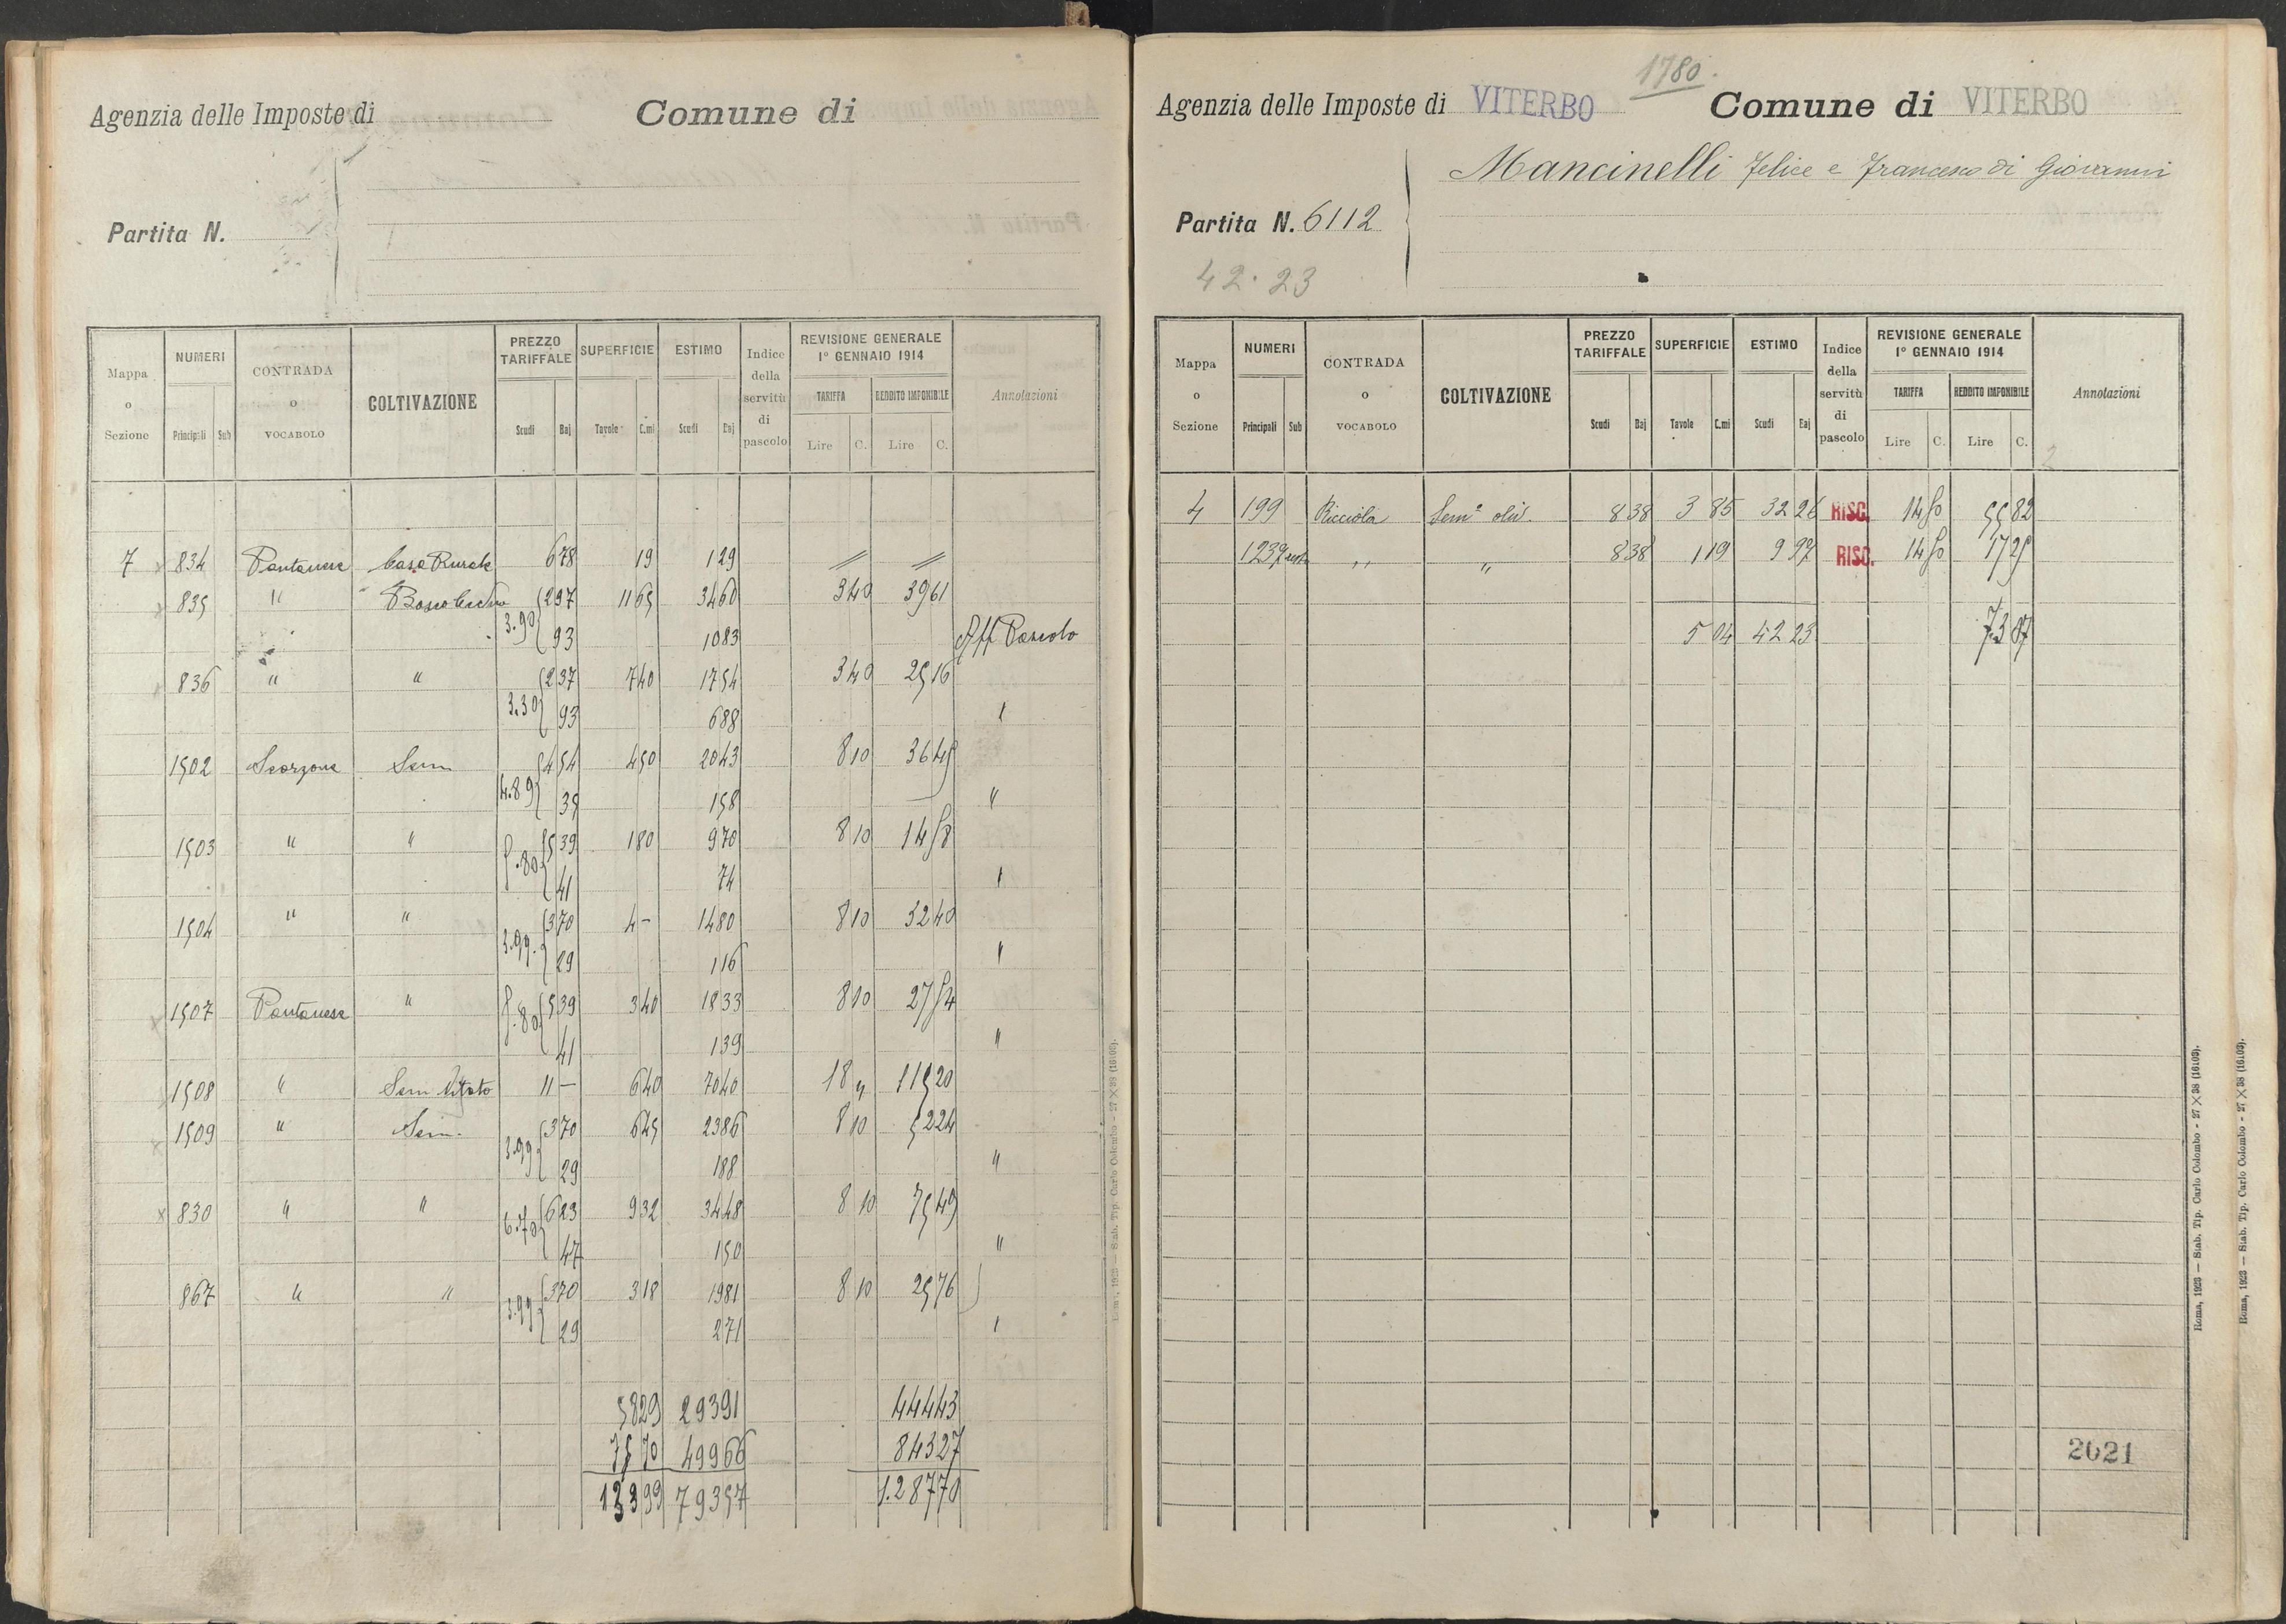 Agenzia delle Imposte di
Comune di
Partita N.
Mappa o Sezione
NUMERI
Principali Sub
CONTRADA o VOCABOLO
COLTIVAZIONE
PREZZO TARIFFALE
Scudi Baj
SUPERFICIE
Tavole C.mi
ESTIMO
Scudi Baj
Indice della servitù di pascolo
REVISIONE GENERALE
1° GENNAIO 1914
TARIFFA
Lire C.
REDDITO IMPONIBILE
Lire C.
Annotazioni
7 834 Pantanese Casa Rurale 678 19 129 〃 〃
835 " Bosco Ceduo 297 1165 3460 340 3961
3.90 93 1083 Aff Pascolo
836 " " 237 740 1754 340 2516
3.30 93 688 "
1502 Scorzone Sem 454 450 2043 810 3645
4.89 35 158 "
1503 " " 539 180 970 810 1458
5.80 41 74 "
1504 " " 370 4- 1480 810 3240
3.99 29 116 "
1507 Pantanese " 539 340 1833 810 2754
5.80 41 139 "
1508 " Sem Vitato 11- 640 7040 18 " 11520
1509 " Sem. 370 645 2386 810 5224
3.99 29 188 "
830 " " 623 932 3448 810 7549
6.70 47 150 "
867 " " 370 318 1981 810 2576
3.99 29 271 "
5829 29391 44443
7570 49966 84327
13399 79357 1.28770
Roma, 1923 — Stab. Tip. Carlo Colombo - 27 × 38 (16103).
1780.
Agenzia delle Imposte di VITERBO
Comune di VITERBO
Mancinelli Felice e Francesco di Giovanni
Partita N. 6112
42.23
Mappa o Sezione
NUMERI
Principali Sub
CONTRADA o VOCABOLO
COLTIVAZIONE
PREZZO TARIFFALE
Scudi Baj
SUPERFICIE
Tavole C.mi
ESTIMO
Scudi Baj
Indice della servitù di pascolo
REVISIONE GENERALE
1° GENNAIO 1914
TARIFFA
Lire C.
REDDITO IMPONIBILE
Lire C.
Annotazioni
2
4 199 Ricciola Sem° oliv. 838 3 85 32 26 RISC. 14 50 55 82
1239 838 1 19 9 97 RISC. 14 50 17 25
" "
5 04 42 23 73 07
2021
Roma, 1923 — Stab. Tip. Carlo Colombo - 27 × 38 (16103).
Roma, 1923 — Stab. Tip. Carlo Colombo - 27 × 38 (16103).